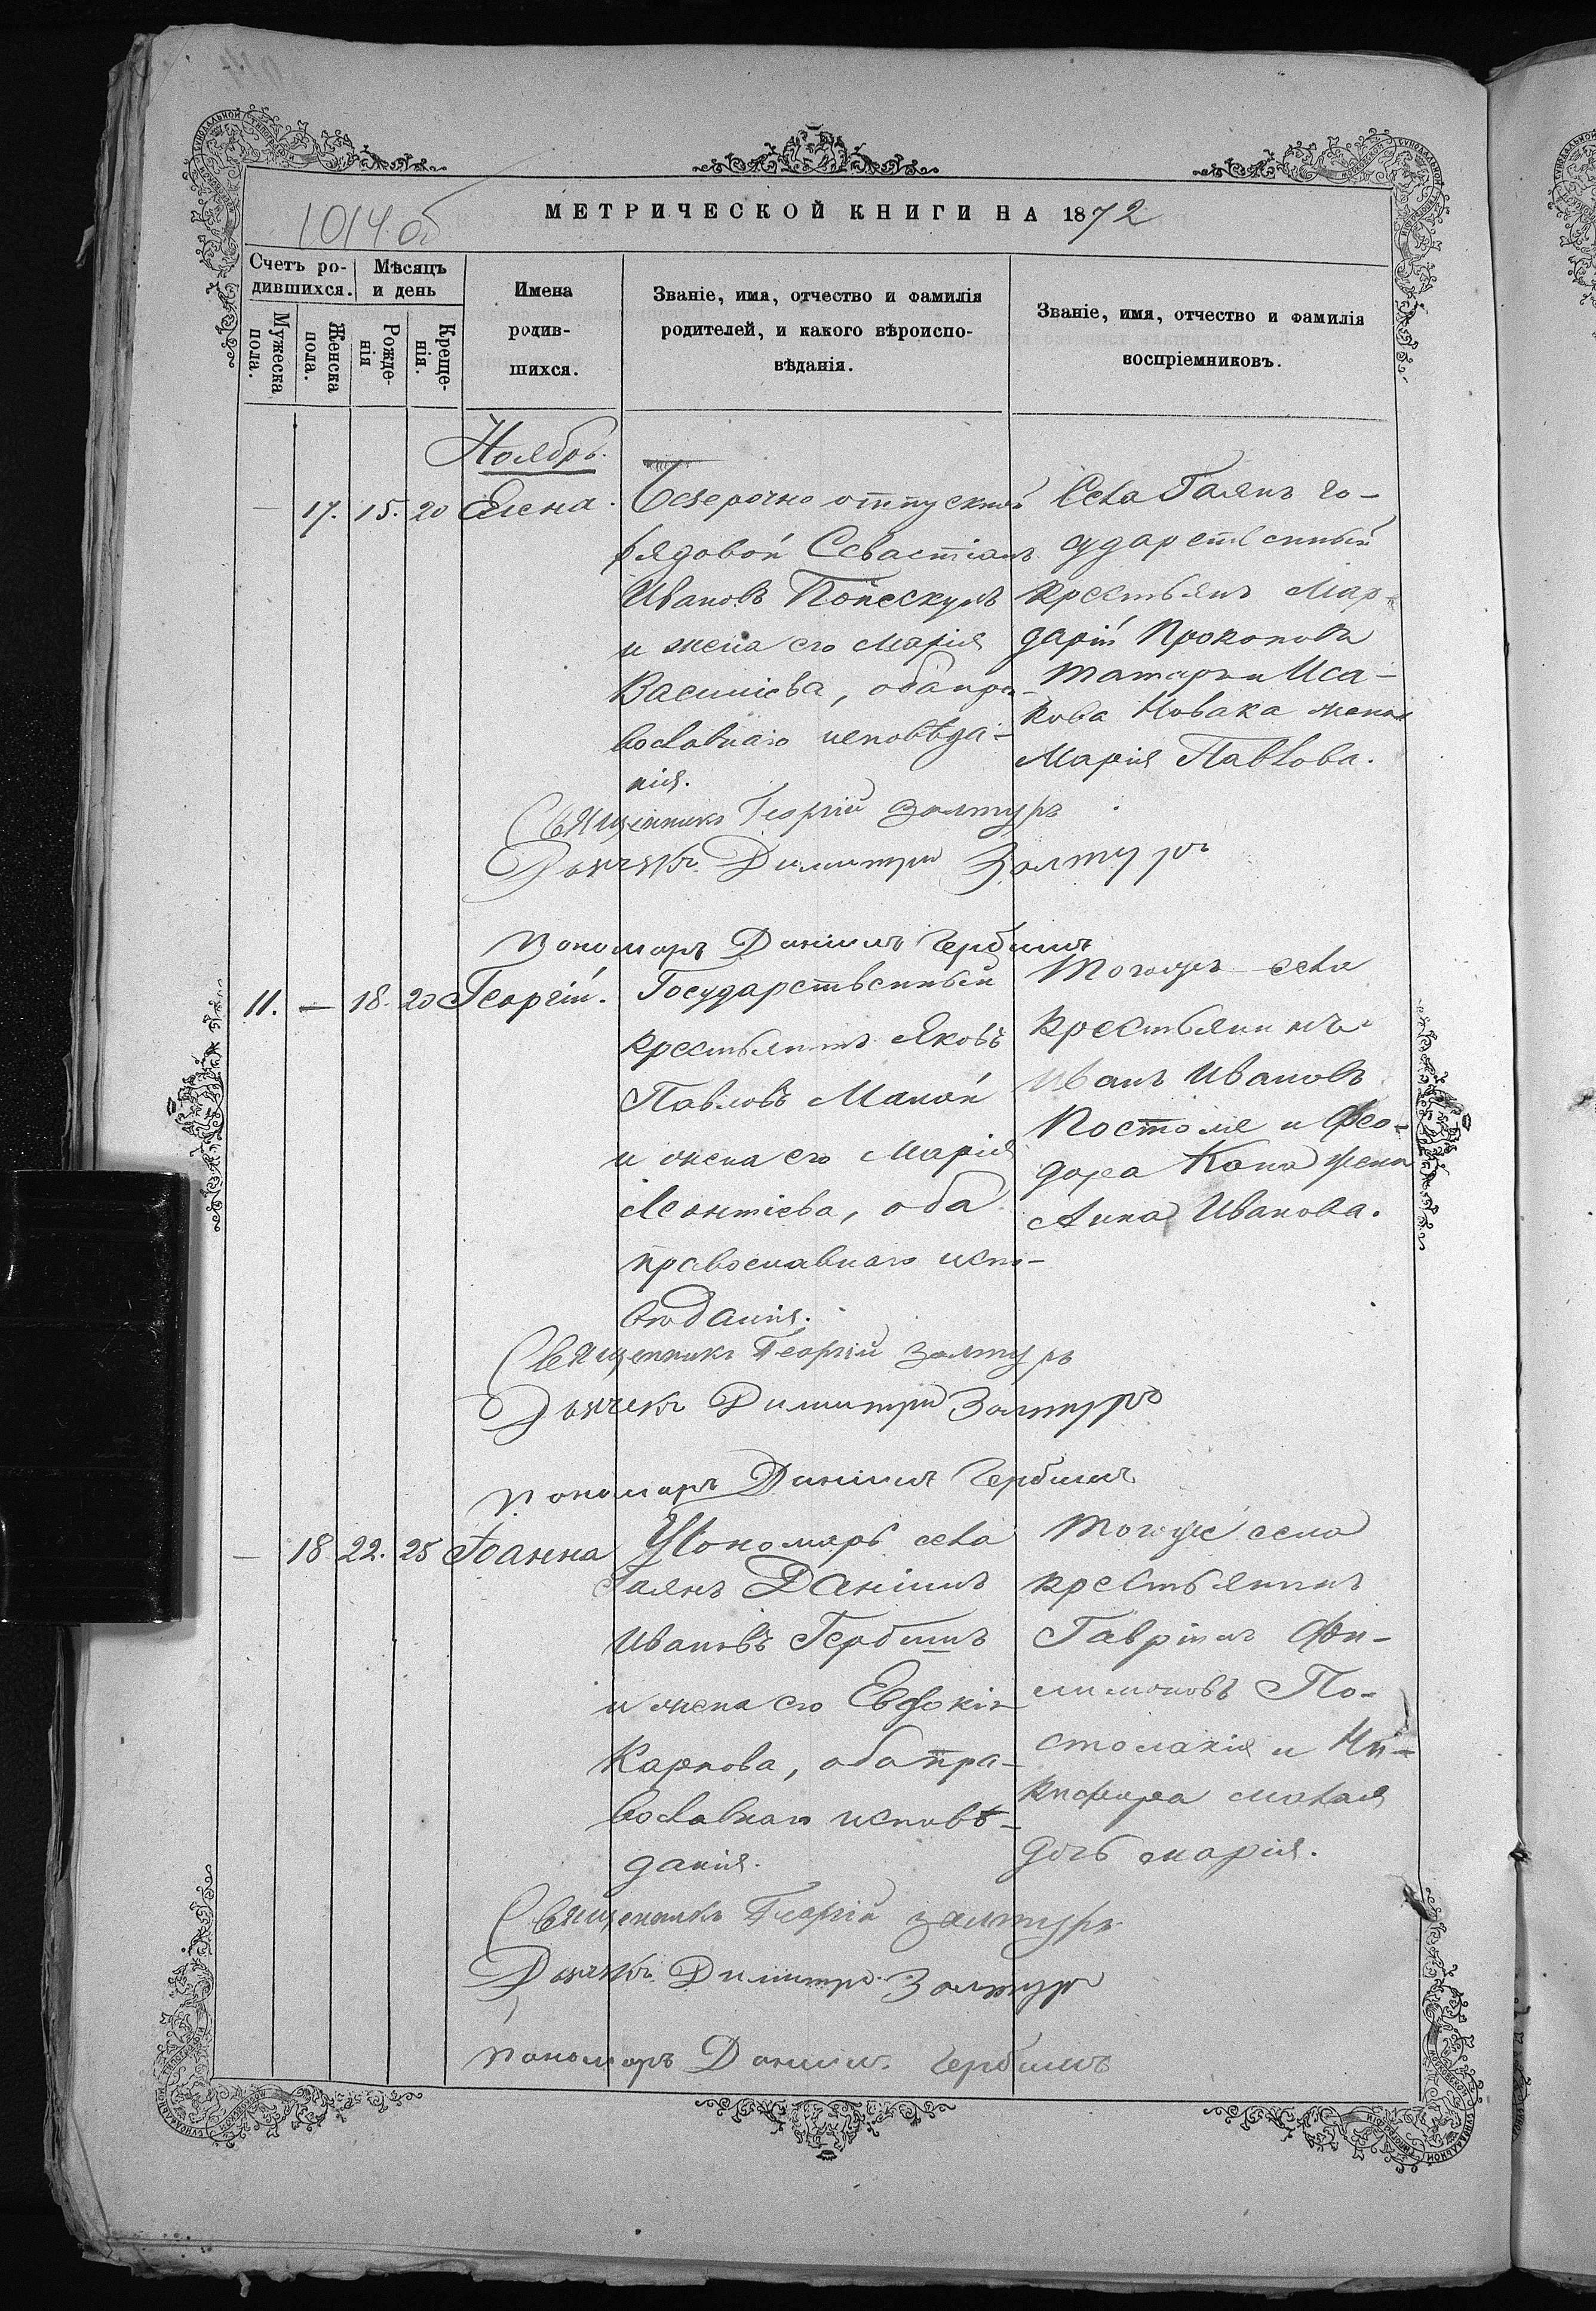 1014 об
МЕТРИЧЕСКОЙ КНИГИ НА 1872
Счетъ ро-
дившихся.
Мужеска
пола.
Женска
пола.
Мѣсяцъ
и день
Рожде-
нія
Креще-
нія.
Имена
родив-
шихся.
Званіе, имя, отчество и фамилія
родителей, и какого вѣроиспо-
вѣданія.
Званіе, имя, отчество и фамилія
воспріемниковъ.
Ноябрь.
— 17. 15. 20 Елена.
Безсрочно отпускной
рядовой Севастіанъ
Ивановъ Попескулъ
и жена его Марія
Василіева, оба пра-
вославнаго исповѣда-
нія.
Села Галянъ го-
сударственный
крестьянъ Мар-
дарій Прокоповъ
Татаръ и Иса-
кова Новака жена
Марія Павлова.
Священникъ Георгій Золтуръ
Дьячекъ Димитри Золтуръ
Пономарь Даніилъ Чербилъ
11. — 18. 20 Георгій.
Государственный
крестьянинъ Яковъ
Павловъ Манон
и жена его Марія
Леонтіева, оба
православнаго испо-
вѣданія.
Тогоже села
крестьянинъ
Иванъ Ивановъ
Постоля и Фео-
дора Кона жена
Анна Иванова.
Священникъ Георгій Золтуръ
Дьячекъ Димитри Золтуръ
Пономарь Даніилъ Чербилъ
— 18 22. 25 Іоанна
Пономарь села
Галянъ Даніилъ
Ивановъ Гербилъ
и жена его Евдокія
Карпова, оба пра-
вославнаго исповѣ-
данія.
Тогоже села
крестьянинъ
Гавріилъ Фи-
лимоновъ По-
столакія и Ни-
кифора Малая
дочь Марія.
Священникъ Георгій Золтуръ
Дьячекъ Димитри Золтуръ
Пономарь Даніилъ Чербилъ